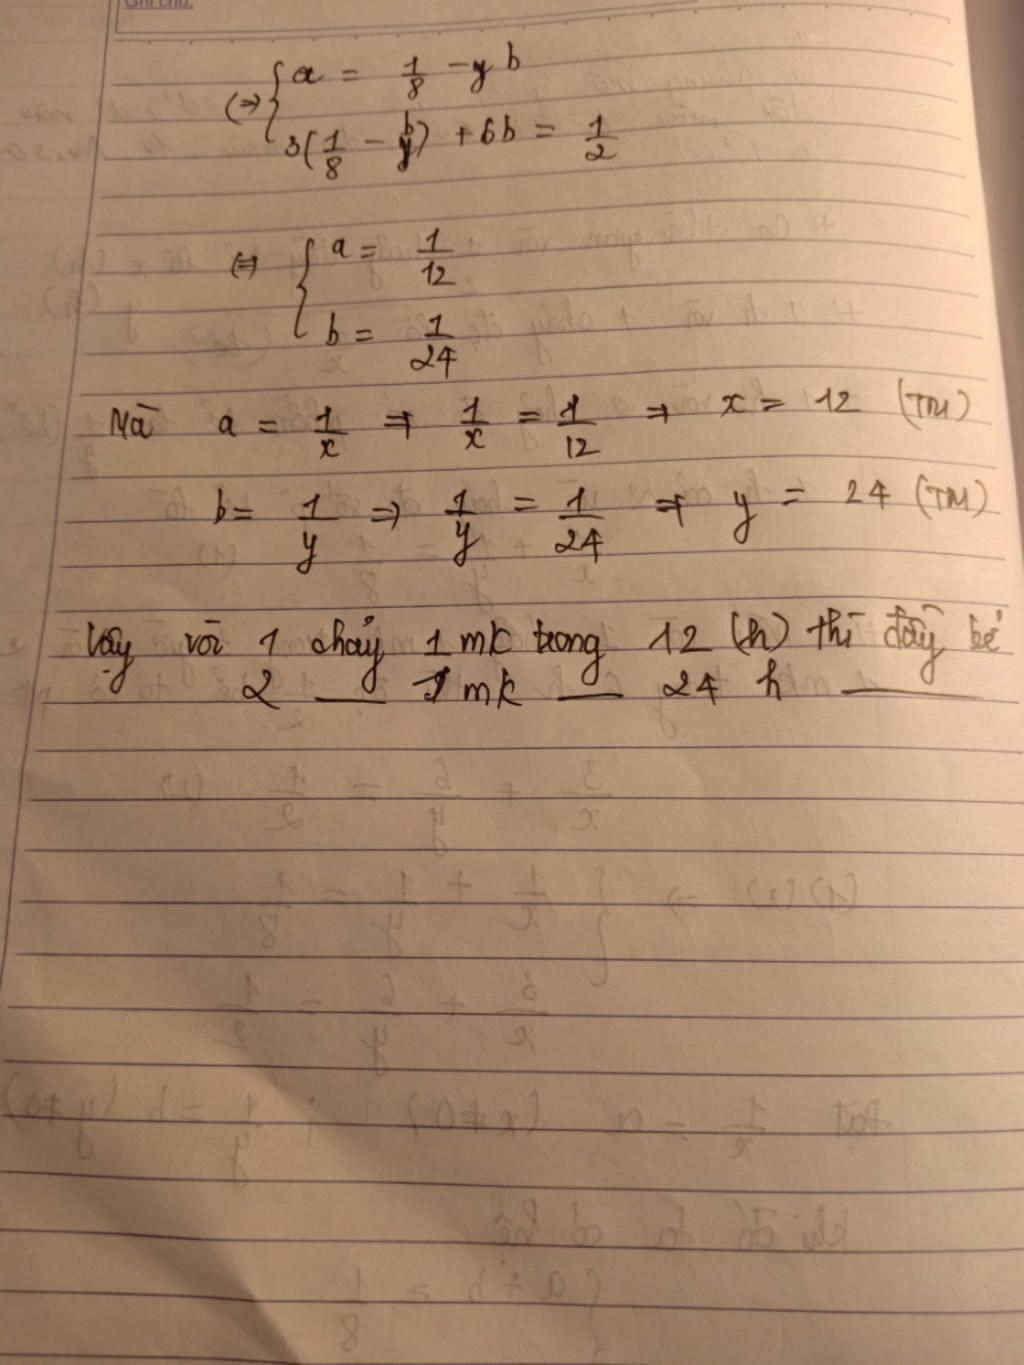 Ghi chú:
(⇒) { a = 1/8 - y b
3(1/8 - b) + 6b = 1/2
⇔ { a = 1/12
b = 1/24
Mà a = 1/x ⇒ 1/x = 1/12 ⇒ x = 12 (TM)
b = 1/y ⇒ 1/y = 1/24 ⇒ y = 24 (TM)
Vậy vòi 1 chảy 1 mk trong 12 (h) thì đầy bể
2 — 1 mk — 24 h —